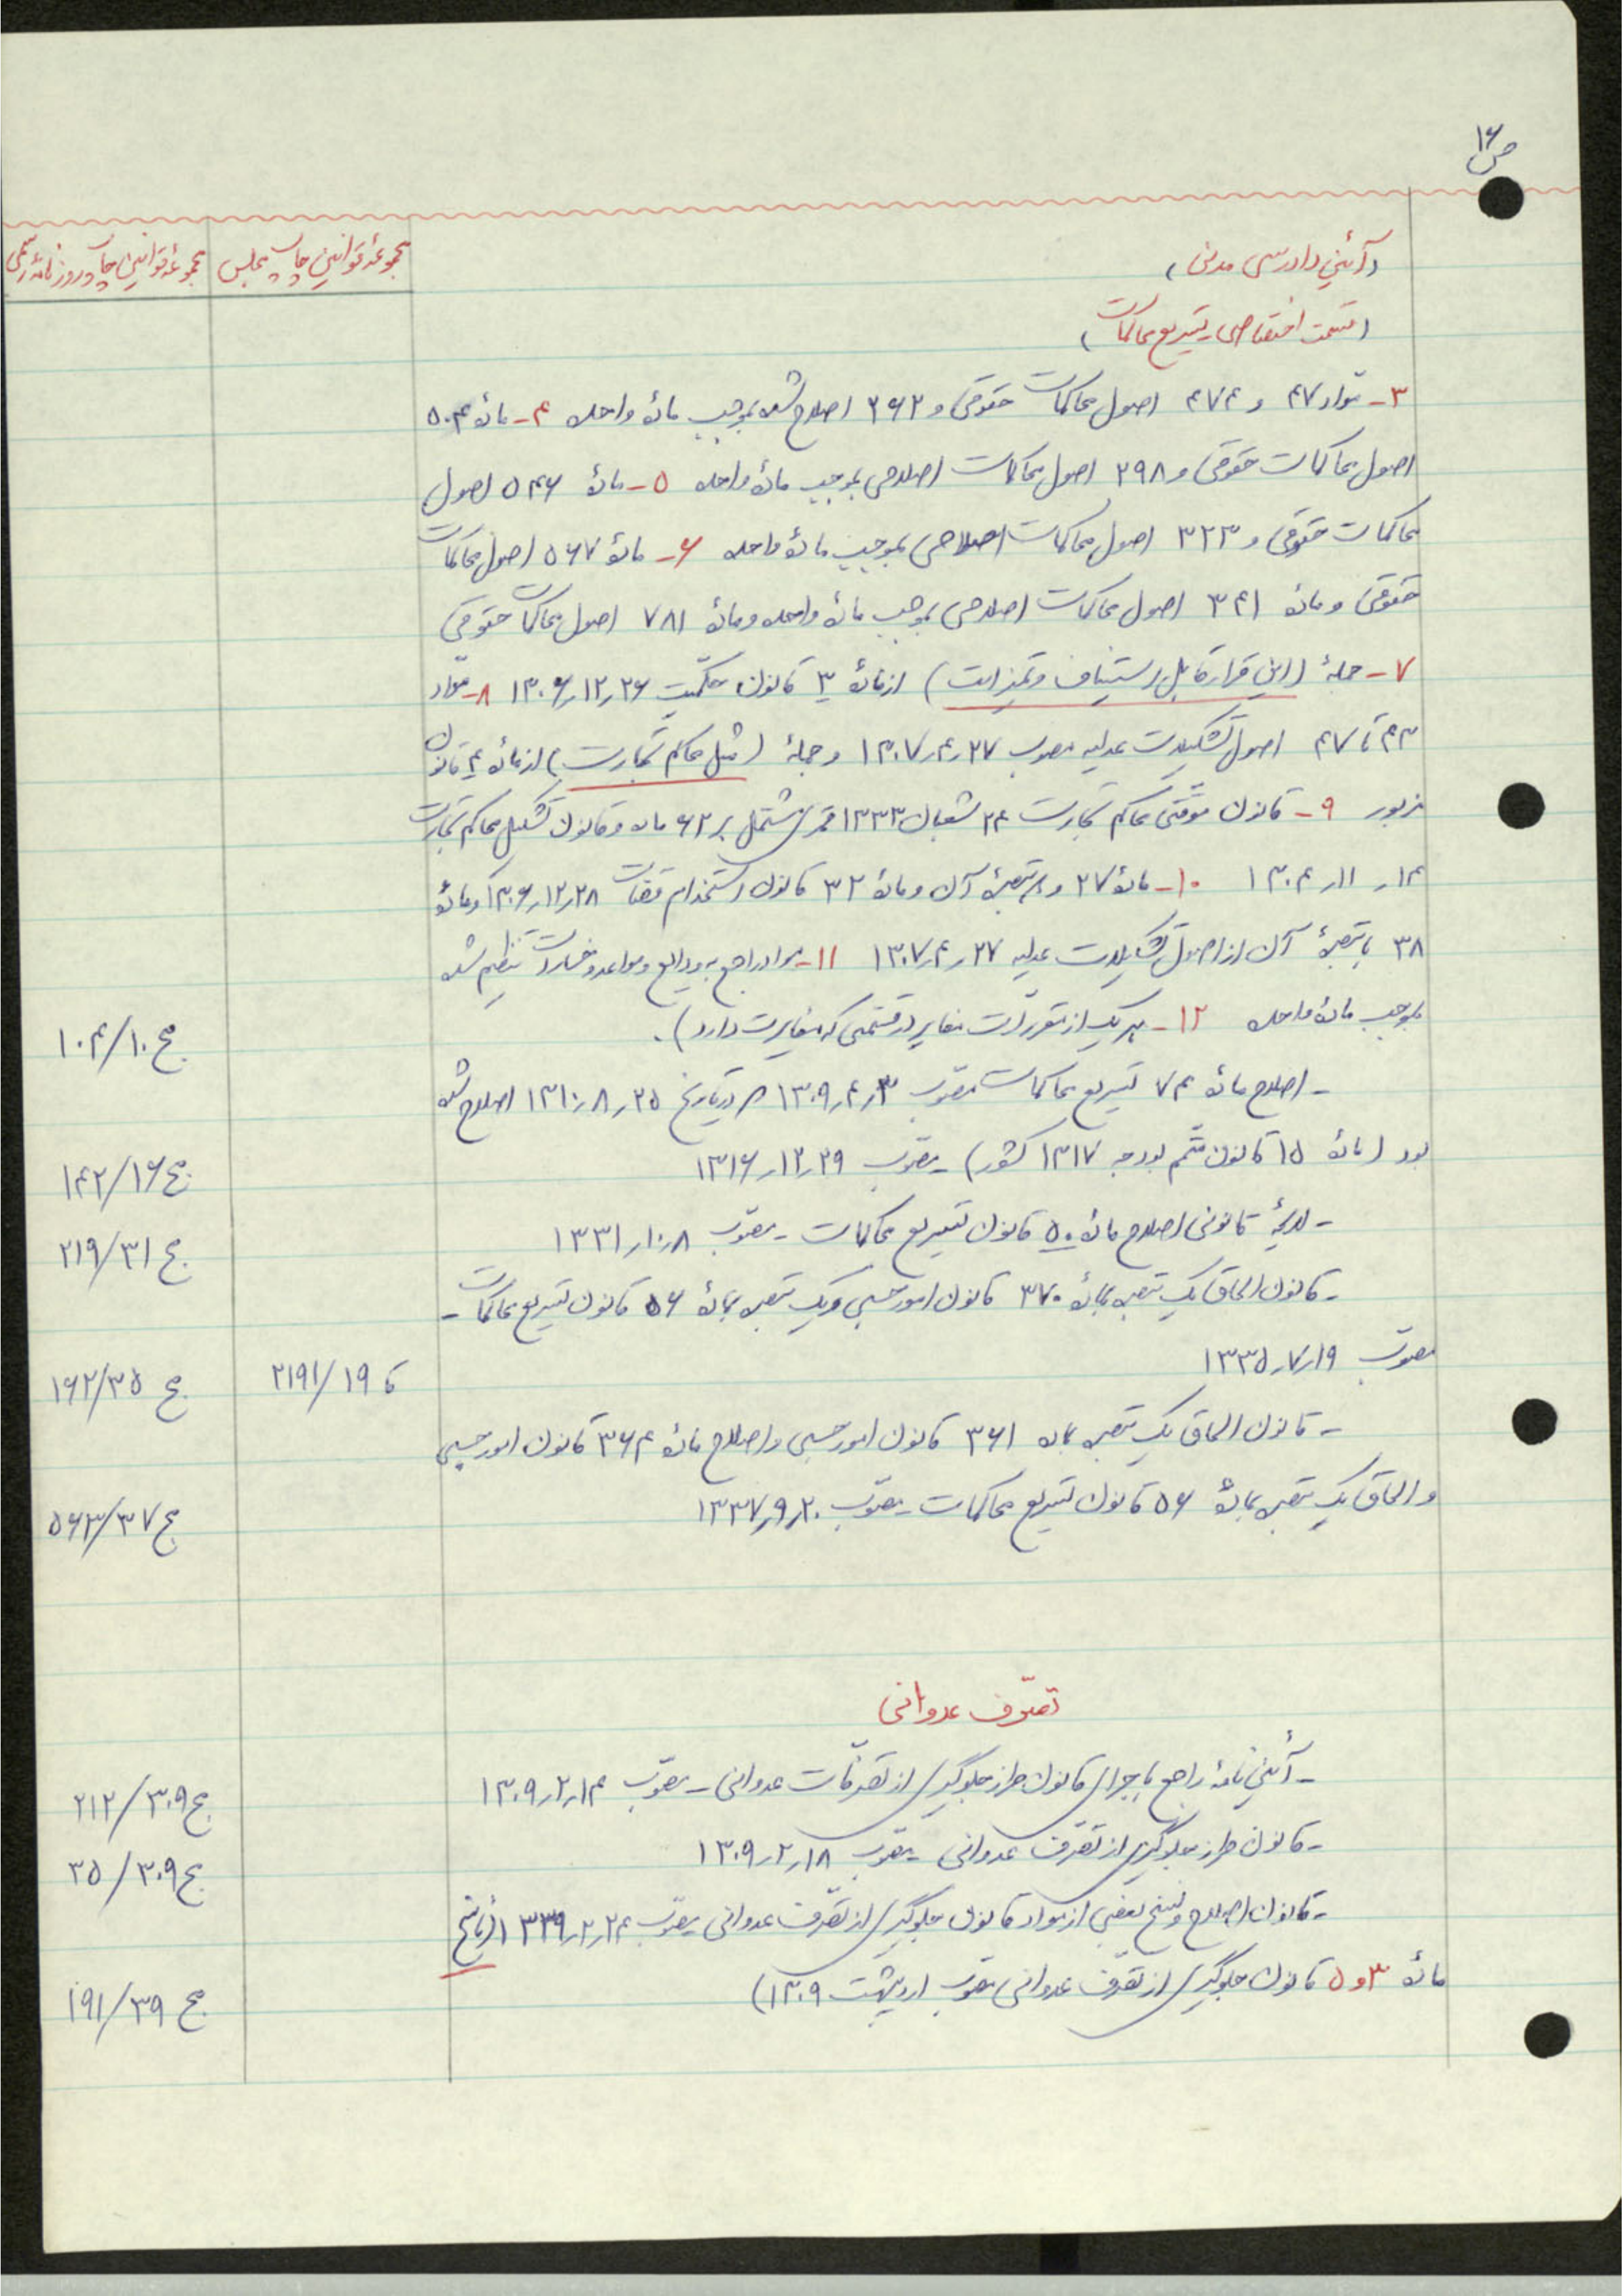 ص ۱۶
مجموعهٔ قوانین چاپ مجلس
مجموعهٔ قوانین چاپ روزنامه رسمی
(آئین دادرسی مدنی)
(قسمت اختصاصی ـ تسریع محاکمات)
۳ـ مواد ۴۷ و ۴۷۴ اصول محاکمات حقوقی و ۲۶۲ اصلاح شده بموجب مادهٔ واحده ۴ـ مادهٔ ۵۰۴
اصول محاکمات حقوقی و ۲۹۸ اصول محاکمات اصلاحی بموجب مادهٔ واحده ۵ـ مادهٔ ۵۴۶ اصول
محاکمات حقوقی و ۳۲۳ اصول محاکمات اصلاحی بموجب مادهٔ واحده ۶ـ مادهٔ ۵۶۷ اصول محاکمات
حقوقی و مادهٔ ۳۴۱ اصول محاکمات اصلاحی بموجب مادهٔ واحده و مادهٔ ۷۸۱ اصول محاکمات حقوقی
۷ـ جملهٔ (این قرار قابل استیناف و تمیز است) از مادهٔ ۳ قانون حکمیت ۲۶ر۱۲ر۱۳۰۶ ۸ـ مواد
۴۳ تا ۴۷ اصول تشکیلات عدلیه مصوب ۲۷ر۴ر۱۳۰۷ و جملهٔ (مثل محاکم تجارت) از مادهٔ ۴ قانون
مزبور ۹ـ قانون موقتی محاکم تجارت ۲۴ شعبان ۱۳۳۳ قمری مشتمل بر ۶۲ ماده و قانون تشکیل محاکم تجارت
۱۴ر ۱۱ر ۱۳۰۴ ۱۰ـ مادهٔ ۲۷ و تبصرهٔ آن و مادهٔ ۳۲ قانون استخدام قضات ۲۸ر۱۲ر۱۳۰۶ و مادهٔ
۳۸ با تبصرهٔ آن از اصول تشکیلات عدلیه ۲۷ر۴ر۱۳۰۷ ۱۱ـ مواد راجع به ودایع و مواعد و خسارات تنظیم شده
بموجب مادهٔ واحده ۱۲ـ هر یک از مقررات مغایر در قسمتی که مغایرت دارد).
ج ۱۰/۱۰۴
ـ اصلاح مادهٔ ۷۴ تسریع محاکمات مصوب ۳ر۴ر۱۳۰۹ که در تاریخ ۲۵ر۸ر۱۳۱۰ اصلاح شده
بود (مادهٔ ۱۵ قانون متمم بودجه ۱۳۱۷ کشور) ـ مصوب ۲۹ر۱۲ر۱۳۱۶
ج ۱۶/۱۴۲
ـ لایحهٔ قانونی اصلاح مادهٔ ۵۰ قانون تسریع محاکمات ـ مصوب ۸ر۱۰ر۱۳۳۱
ج ۳۱/۲۱۹
ـ قانون الحاق یک تبصره بمادهٔ ۳۷۰ قانون امور حسبی و یک تبصره بمادهٔ ۵۶ قانون تسریع محاکمات ـ
مصوب ۱۹ر۷ر۱۳۳۵
ک ۱۹/۲۱۹۱
ج ۳۵/۱۶۲
ـ قانون الحاق یک تبصره بماده ۳۶۱ قانون امور حسبی و اصلاح مادهٔ ۳۶۴ قانون امور حسبی
و الحاق یک تبصره بمادهٔ ۵۶ قانون تسریع محاکمات ـ مصوب ۲۰ر۹ر۱۳۳۷
ج ۳۷/۵۶۳
تصرّف عدوانی
ـ آئین‌نامهٔ راجع باجرای قانون طرز جلوگیری از تصرفات عدوانی ـ مصوب ۱۴ر۲ر۱۳۰۹
ج ۳۰۹/۲۱۲
ـ قانون طرز جلوگیری از تصرف عدوانی ـ مصوب ۱۸ر۲ر۱۳۰۹
ج ۳۰۹/۳۵
ـ قانون اصلاح و نسخ بعضی از مواد قانون جلوگیری از تصرف عدوانی ـ مصوب ۲۴ر۲ر۱۳۳۹ (ناسخ
مادهٔ ۳ و ۵ قانون جلوگیری از تصرف عدوانی مصوب اردیبهشت ۱۳۰۹)
ج ۳۹/۱۹۱